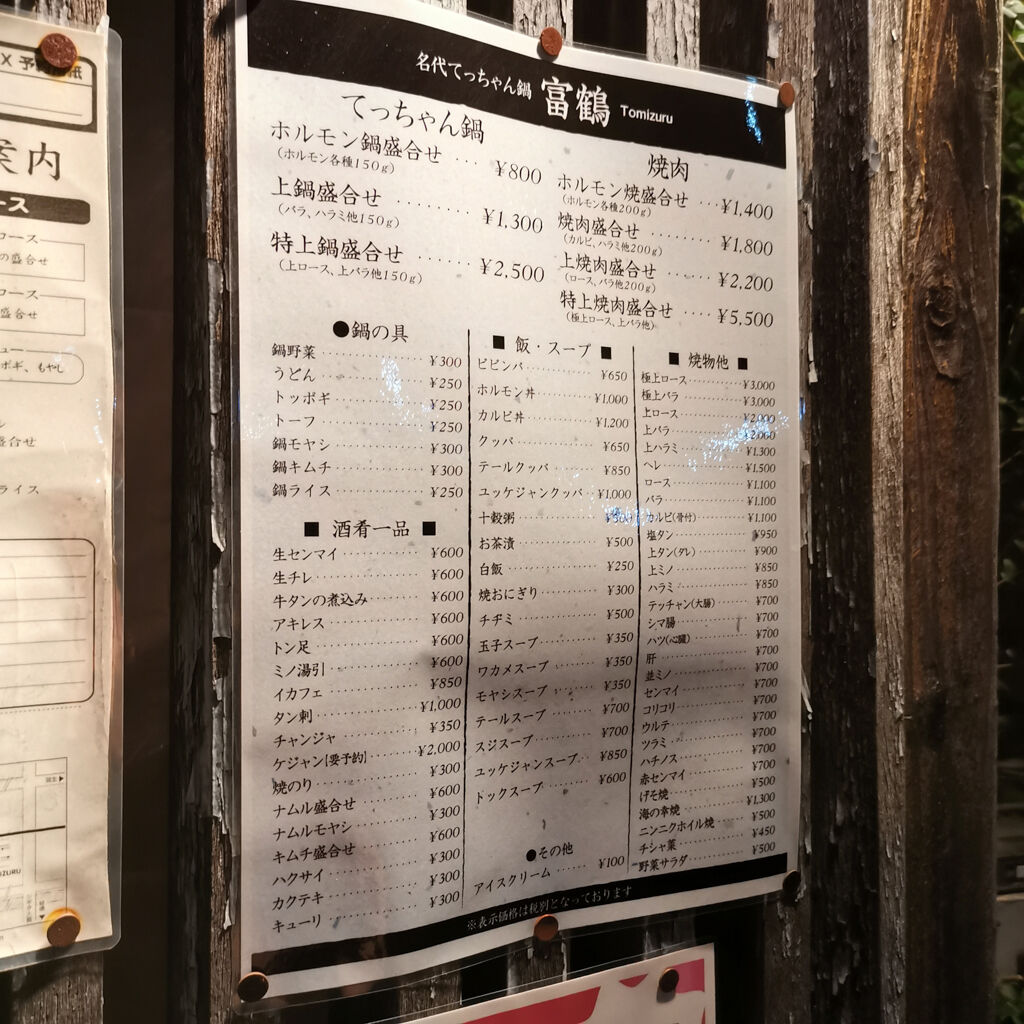 名代てっちゃん鍋 富鶴 Tomizuru
てっちゃん鍋
ホルモン鍋盛合せ ‥‥ ¥800
(ホルモン各種150g)
上鍋盛合せ ‥‥‥‥ ¥1,300
(バラ、ハラミ他150g)
特上鍋盛合せ ‥‥‥ ¥2,500
(上ロース、上バラ他150g)
焼肉
ホルモン焼盛合せ ‥‥ ¥1,400
(ホルモン各種200g)
焼肉盛合せ ‥‥‥‥ ¥1,800
(カルビ、ハラミ他200g)
上焼肉盛合せ ‥‥‥ ¥2,200
(ロース、バラ他200g)
特上焼肉盛合せ ‥‥ ¥5,500
(極上ロース、上バラ他)
●鍋の具
鍋野菜 ¥300
うどん ¥250
トッポギ ¥250
トーフ ¥250
鍋モヤシ ¥300
鍋キムチ ¥300
鍋ライス ¥250
■ 酒肴一品 ■
生センマイ ¥600
生チレ ¥600
牛タンの煮込み ¥600
アキレス ¥600
トン足 ¥600
ミノ湯引 ¥600
イカフェ ¥850
タン刺 ¥1,000
チャンジャ ¥350
ケジャン[要予約] ¥2,000
焼のり ¥300
ナムル盛合せ ¥600
ナムルモヤシ ¥300
キムチ盛合せ ¥600
ハクサイ ¥300
カクテキ ¥300
キューリ ¥300
■ 飯・スープ ■
ビビンバ ¥650
ホルモン丼 ¥1,000
カルビ丼 ¥1,200
クッパ ¥650
テールクッパ ¥850
ユッケジャンクッパ ¥1,000
十穀粥
お茶漬 ¥500
白飯 ¥250
焼おにぎり ¥300
チヂミ ¥500
玉子スープ ¥350
ワカメスープ ¥350
モヤシスープ ¥350
テールスープ ¥700
スジスープ ¥700
ユッケジャンスープ ¥850
ドックスープ ¥600
●その他
アイスクリーム ¥100
■ 焼物他 ■
極上ロース ¥3,000
極上バラ ¥3,000
上ロース ¥2,000
上バラ ¥2,000
上ハラミ ¥1,300
ヘレ ¥1,500
ロース ¥1,100
バラ ¥1,100
カルビ(骨付) ¥1,100
塩タン ¥950
上タン(タレ) ¥900
上ミノ ¥850
ハラミ ¥850
テッチャン(大腸) ¥700
シマ腸 ¥700
ハツ(心臓) ¥700
肝 ¥700
並ミノ ¥700
センマイ ¥700
コリコリ ¥700
ウルテ ¥700
ツラミ ¥700
ハチノス ¥700
赤センマイ ¥700
げそ焼 ¥500
海の幸焼 ¥1,300
ニンニクホイル焼 ¥500
チシャ菜 ¥450
野菜サラダ ¥500
※表示価格は税別となっております
案内
ース
ロース
の盛合せ
ロース
盛合せ
ュー
ボギ、もやし
盛合せ
ライス
IZURU